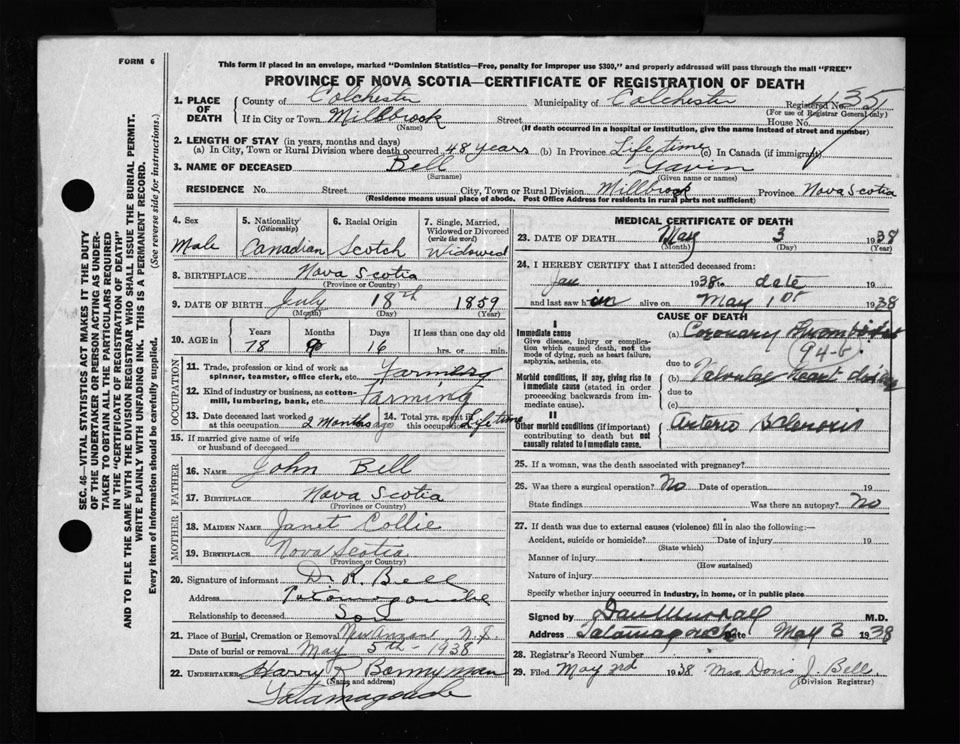 FORM 6
This form if placed in an envelope, marked "Dominion Statistics—Free, penalty for improper use $300," and properly addressed will pass through the mail "FREE"
PROVINCE OF NOVA SCOTIA—CERTIFICATE OF REGISTRATION OF DEATH
1. PLACE OF DEATH County of Colchester Municipality of Colchester Registered No. 1135
(For use of Registrar General only)
If in City or Town Millbrook Street House No.
(Name) (If death occurred in a hospital or institution, give the name instead of street and number)
2. LENGTH OF STAY (in years, months and days)
(a) In City, Town or Rural Division where death occurred 48 years (b) In Province Life time (c) In Canada (if immigrant)
3. NAME OF DECEASED Bell Gavin
(Surname) (Given name or names)
RESIDENCE No. Street City, Town or Rural Division Millbrook Province Nova Scotia
(Residence means usual place of abode. Post Office Address for residents in rural parts not sufficient)
4. Sex Male
5. Nationality (Citizenship) Canadian
6. Racial Origin Scotch
7. Single, Married, Widowed or Divorced (write the word) Widowed
8. BIRTHPLACE Nova Scotia
(Province or Country)
9. DATE OF BIRTH July 18th 1859
(Month) (Day) (Year)
10. AGE in Years Months Days If less than one day old
78 9 16 hrs. or min.
OCCUPATION
11. Trade, profession or kind of work as spinner, teamster, office clerk, etc. Farmers
12. Kind of industry or business, as cotton-mill, lumbering, bank, etc. Farming
13. Date deceased last worked at this occupation 2 months ago
14. Total yrs. spent in this occupation Life time
15. If married give name of wife or husband of deceased
FATHER
16. NAME John Bell
17. BIRTHPLACE Nova Scotia
(Province or Country)
MOTHER
18. MAIDEN NAME Janet Collie
19. BIRTHPLACE Nova Scotia
(Province or Country)
20. Signature of informant Dr R. Bell
Address
Relationship to deceased Son
21. Place of Burial, Cremation or Removal New Annan N.S.
Date of burial or removal May 5th - 1938
22. UNDERTAKER Harry R Bonnyman
(Name and address)
Tatamagouche
MEDICAL CERTIFICATE OF DEATH
23. DATE OF DEATH May 3 1938
(Month) (Day) (Year)
24. I HEREBY CERTIFY that I attended deceased from:
Jan 1938 to date
and last saw him alive on May 1st 1938
CAUSE OF DEATH
I
Immediate cause (a) Coronary Thrombosis
Give disease, injury or complication which caused death, not the mode of dying, such as heart failure, asphyxia, asthenia, etc.
94-b
due to
Morbid conditions, if any, giving rise to immediate cause (stated in order proceeding backwards from immediate cause). (b) Valvular heart disease
due to
(c)
II
Other morbid conditions (if important) contributing to death but not causally related to immediate cause. Arterio Sclerosis
25. If a woman, was the death associated with pregnancy?
26. Was there a surgical operation? No Date of operation 19
State findings Was there an autopsy? No
27. If death was due to external causes (violence) fill in also the following:—
Accident, suicide or homicide? Date of injury 19
(State which)
Manner of injury
(How sustained)
Nature of injury
Specify whether injury occurred in Industry, in home, or in public place
Signed by M.D.
Address Tatamagouche Date May 3 1938
28. Registrar's Record Number
29. Filed May 3rd 1938 Mrs Doris J. Bell
(Division Registrar)
SEC. 46—VITAL STATISTICS ACT MAKES IT THE DUTY
OF THE UNDERTAKER OR PERSON ACTING AS UNDER-
TAKER TO OBTAIN ALL THE PARTICULARS REQUIRED
IN THE "CERTIFICATE OF REGISTRATION OF DEATH"
AND TO FILE THE SAME WITH THE DIVISION REGISTRAR WHO SHALL ISSUE THE BURIAL PERMIT.
WRITE PLAINLY WITH UNFADING INK. THIS IS A PERMANENT RECORD.
Every item of information should be carefully supplied. (See reverse side for instructions.)